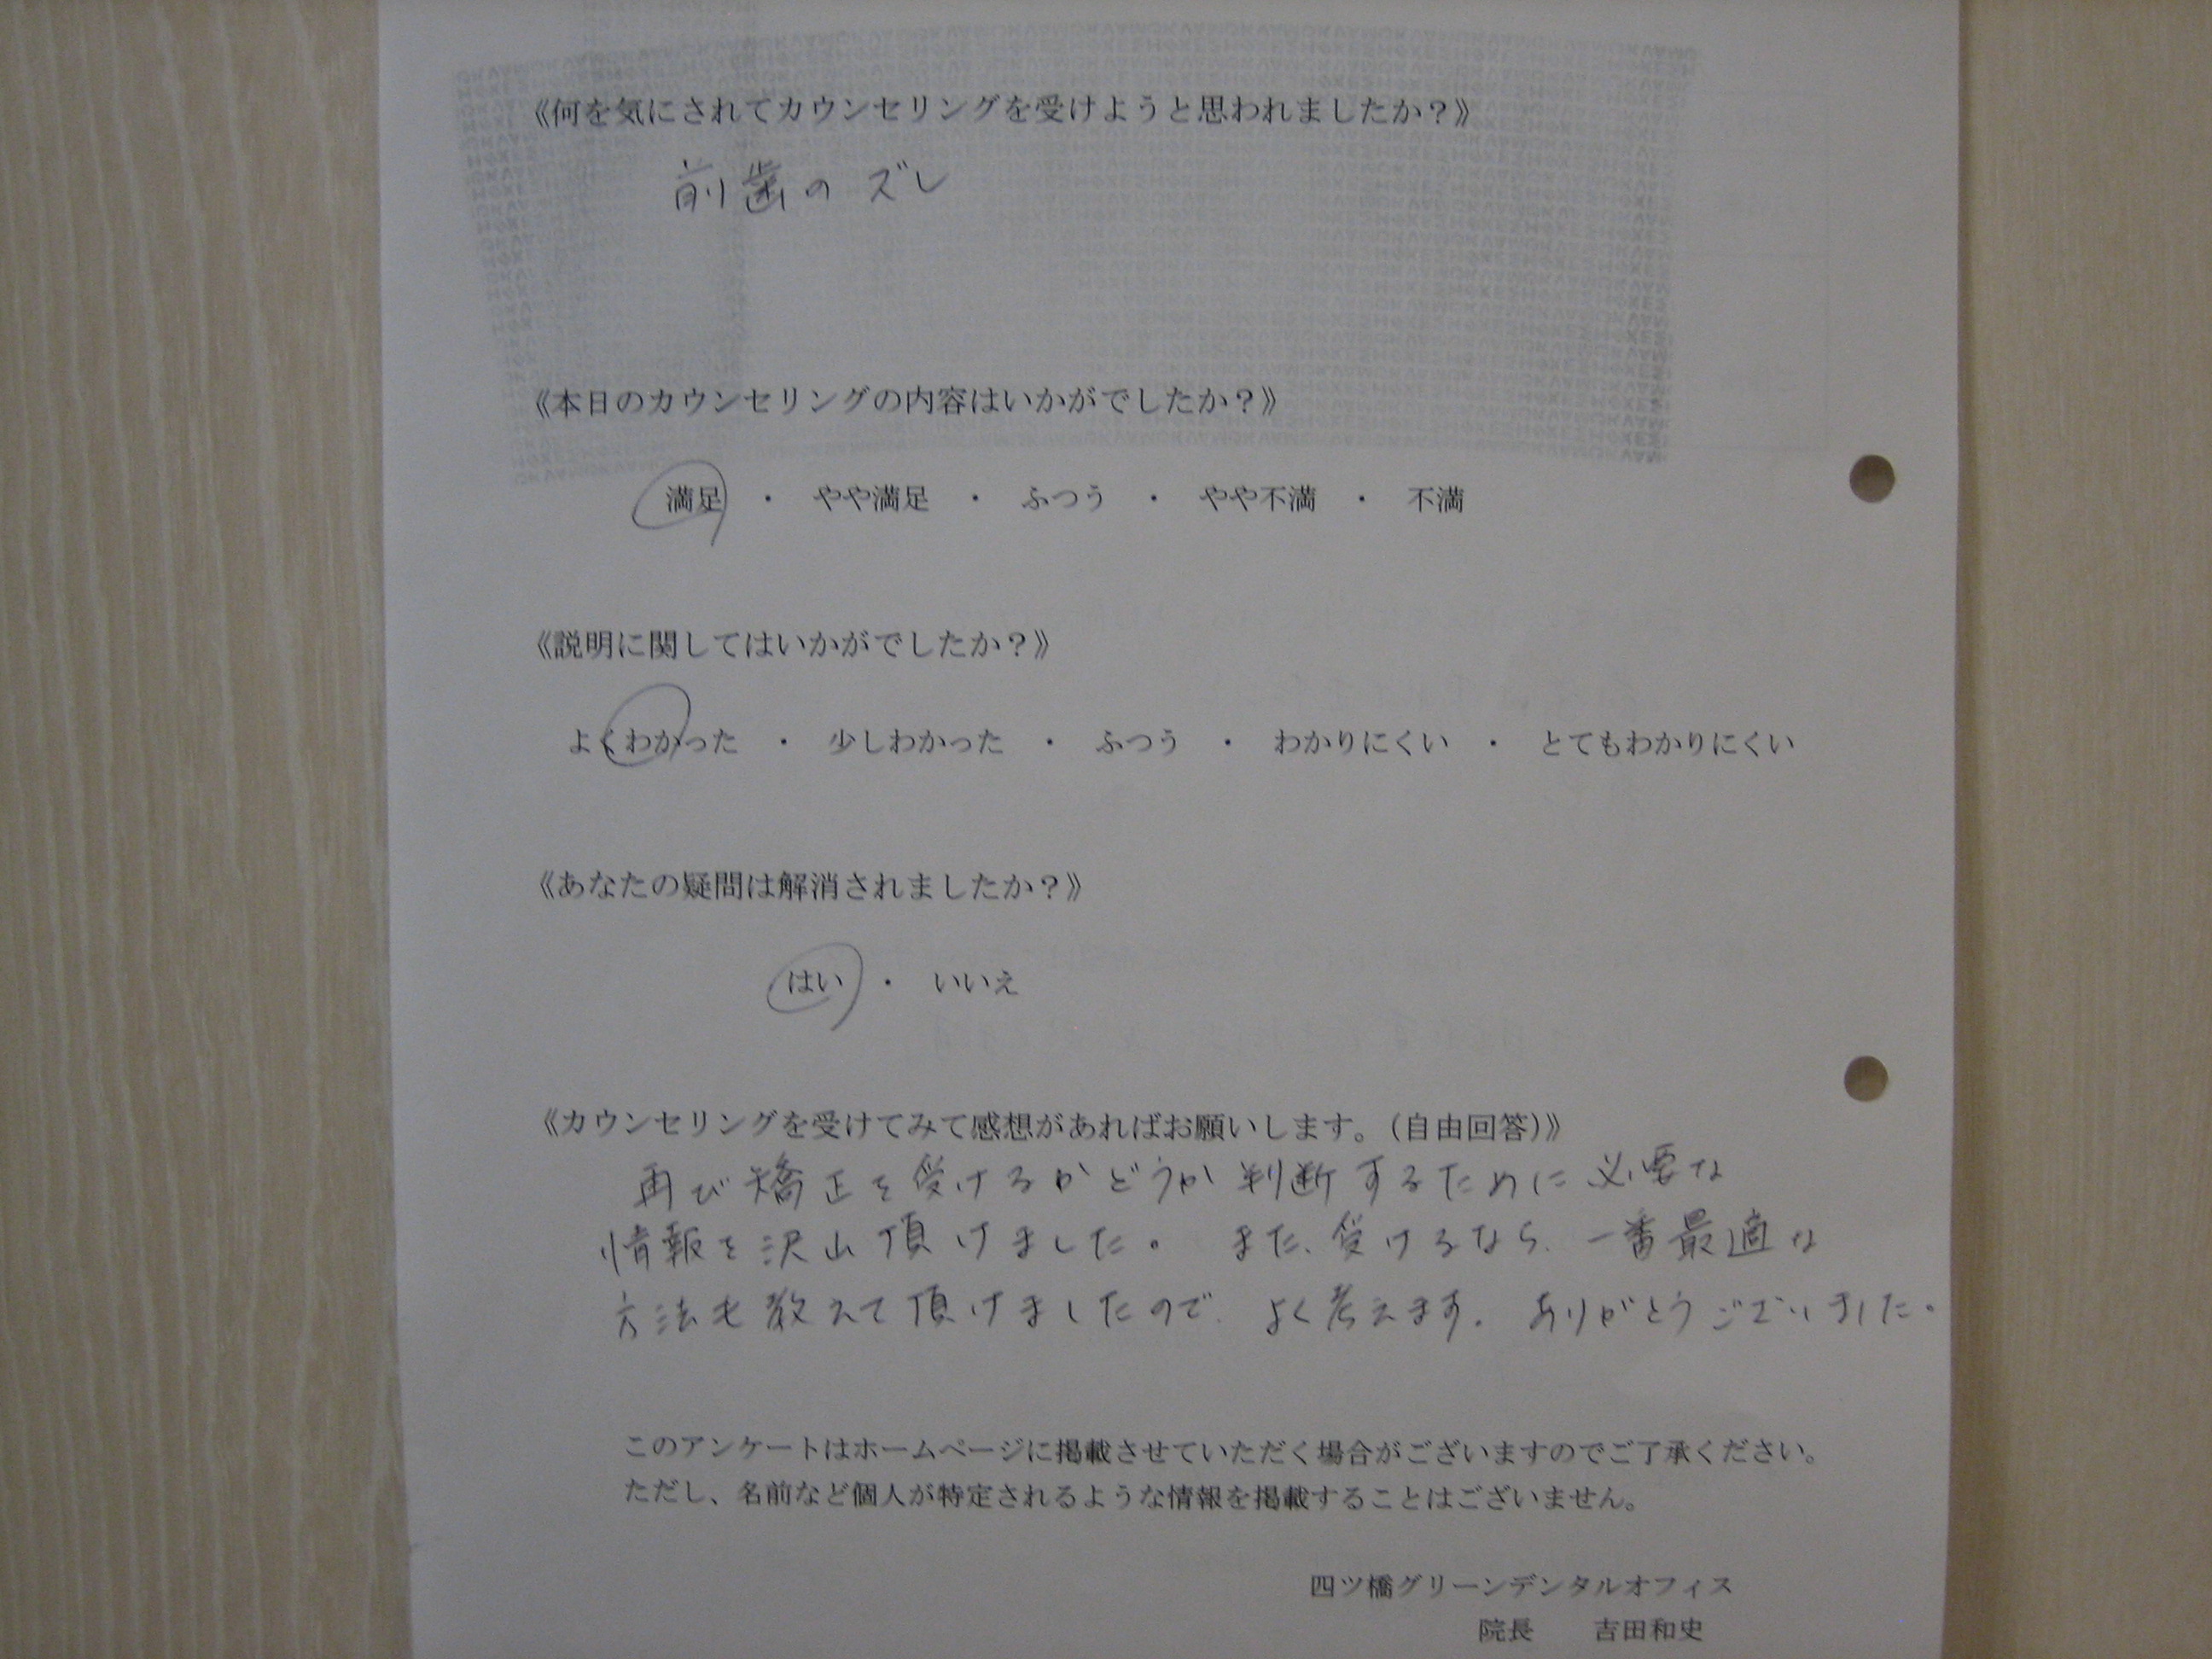 《何を気にされてカウンセリングを受けようと思われましたか？》
前歯のズレ
《本日のカウンセリングの内容はいかがでしたか？》
満足 ・ やや満足 ・ ふつう ・ やや不満 ・ 不満
《説明に関してはいかがでしたか？》
よくわかった ・ 少しわかった ・ ふつう ・ わかりにくい ・ とてもわかりにくい
《あなたの疑問は解消されましたか？》
はい ・ いいえ
《カウンセリングを受けてみて感想があればお願いします。（自由回答）》
再び矯正を受けるかどうか判断するために必要な
情報を沢山頂けました。また、受けるなら、一番最適な
方法も教えて頂けましたので、よく考えます。ありがとうございました。
このアンケートはホームページに掲載させていただく場合がございますのでご了承ください。
ただし、名前など個人が特定されるような情報を掲載することはございません。
四ツ橋グリーンデンタルオフィス
院長 吉田和史